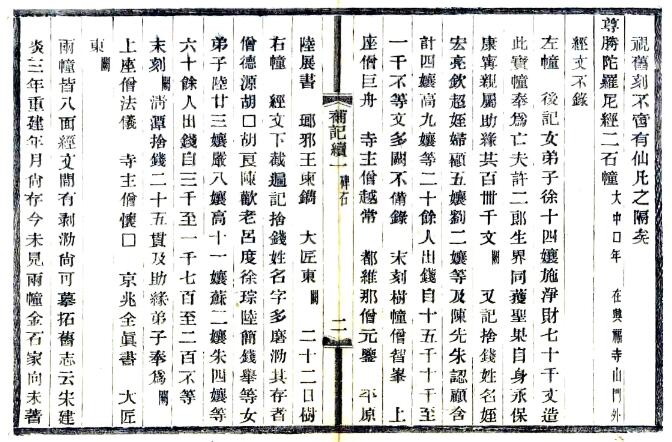 視舊刻不啻有仙凡之隔矣
尊勝陀羅尼經二石幢 大中口年 在興福寺山門外
經文不錄
左幢 後記女弟子徐十四孃施淨財七十千文造
此寶幢奉爲亡夫許二郎生界同獲聖果自身永保
康寧親屬助緣共百卅千文闕 又記捨錢姓名姪
宏亮欽超姪婦顧五孃劉二孃等及陳先朱認顧含
計四孃高九孃等二十餘人出錢自十五千十千至
一千不等文多闕不備錄 末刻樹幢僧智峯 上
座僧巨舟 寺主僧越常 都維那僧元鑒 平原
補記續一 碑石 二
陸展書 鄊邪王東鐫 大匠東闕 二十二日樹
右幢 經文下截遍記捨錢姓名字多磨泐其存者
僧德源胡口胡亙陳歡老呂度徐琮陸簡錢舉等女
弟子陸廿三孃嚴八孃高十一孃蘇二孃朱四孃等
六十餘人出錢自三千至一千七百至二百不等
末刻闕清潭捨錢二十五貫及助緣弟子奉爲闕
上座僧法儀 寺主僧懷口 京兆全眞書 大匠
東闕
兩幢皆八面經文閒有剥泐尙可摹拓舊志云宋建
炎三年重建年月尙存今未見兩幢金石家向未著